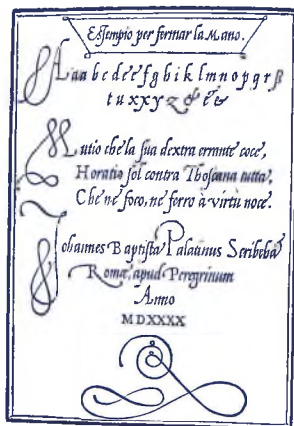 Essempio per fermar la Mano.
Aaa b c d e é f g h i k l m n o p q r ß
t u x x y z & é &
Mutio che la sua dextra errante coce,
Horatio sol contra Thoscana tutta,
Che né foco, né ferro à virtù noce.
Iohannes Baptista Palatinus Scribeba
Romæ, apud Peregrinum
Anno
MDXXXX